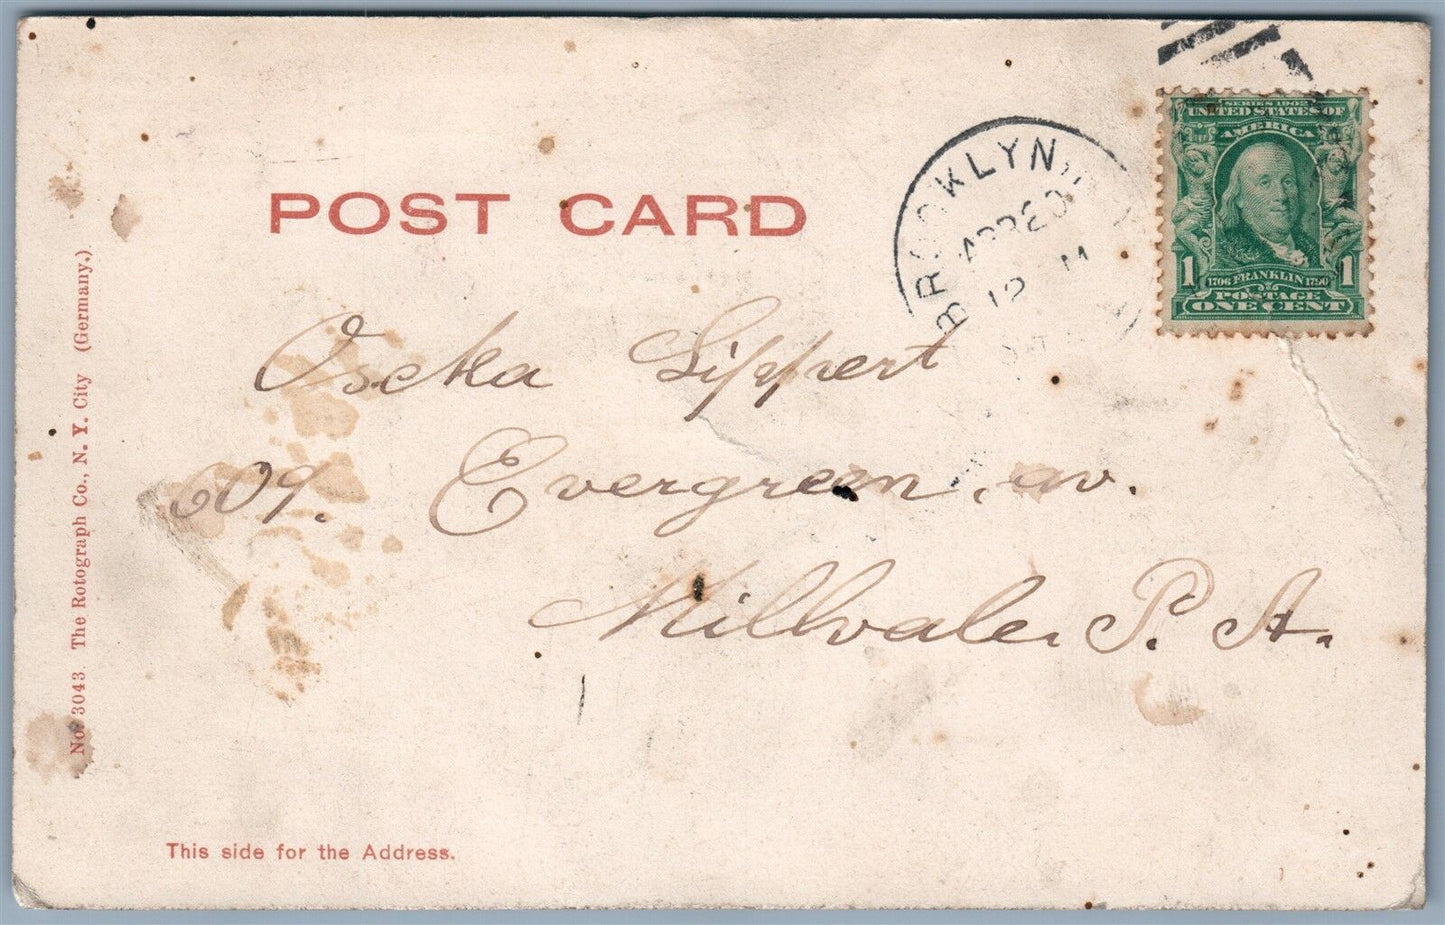 POST CARD
BROOKLYN
APR 20
12 M
SERIES 1902
UNITED STATES OF
AMERICA
1 1706 FRANKLIN 1790 1
POSTAGE
ONE CENT
Oscka Lippert
609. Evergreen, av.
Millvale. P. A.
No. 3043 The Rotograph Co., N. Y. City (Germany.)
This side for the Address.